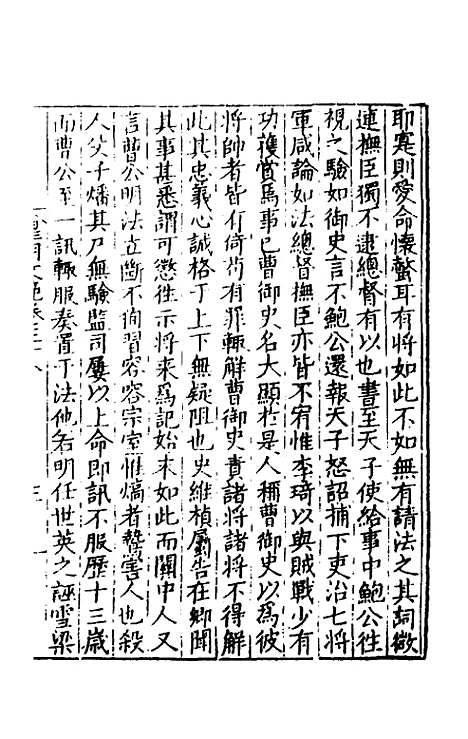 耶寔則愛命懷螫耳有將如此不如無有請法之其詞徼
連撫臣獨不逮總督有以也書至天子使給事中鮑公徃
視之驗如御史言不鮑公還報天子怒詔捕下吏治七將
軍咸論如法總督撫臣亦皆不宥惟李琦以與賊戰少有
功獲賞爲事已曹御史名大顯於是人稱曹御史以爲彼
將帥者皆有倚茍有罪輒觧曹御史責諸將諸將不得解
此其忠義心誠格于上下無疑阻也史維楨屬告在鄉聞
其事甚悉謂可懲徃示將來爲記始末如此而關中人又
言曹公明法立斷不徇習容容宗室惟熇者鷙害人也殺
人父子燔其乃無驗監司屢以上命即訊不服歷十三歲
而曹公至一訊輒服奏置于法他若明任世英之誣雪梁
皇明文範卷三十八
三